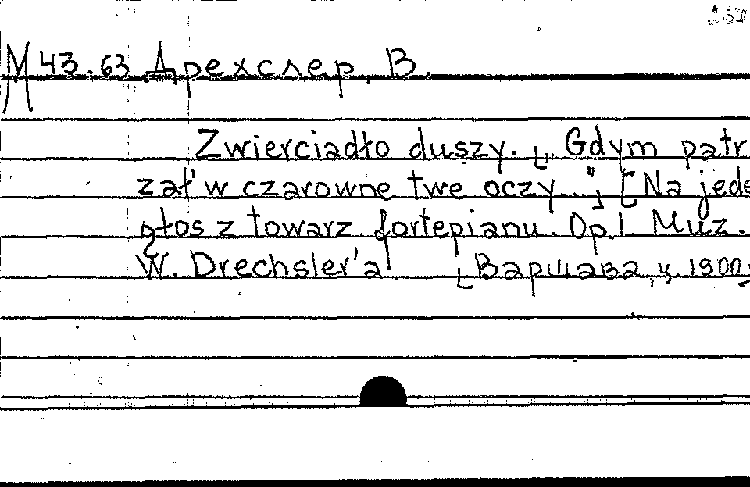 М 43.63 Дрехслер, В.
Zwierciadło duszy. [„Gdym patr
zał w czarowne twe oczy..."] [Na jede
głos z towarz fortepianu. Op.1. Muz.
W. Drechsler'a [Варшава, ц. 1900